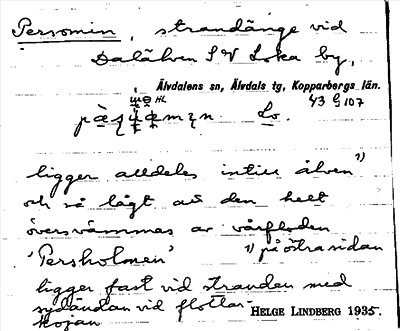 Persomin, strandänge vid
Dalälven SV Loka by,
Älvdalens sn, Älvdals tg, Kopparbergs län.
HL
43 G 107
Lo.
ligger alldeles intill älven 1)
och så lågt att den helt
översvämmas av vårfloden
'Persholmen' 1) på östra sidan
ligger fast vid stranden med
sydändan vid flottar-
kojan
HELGE LINDBERG 1935.